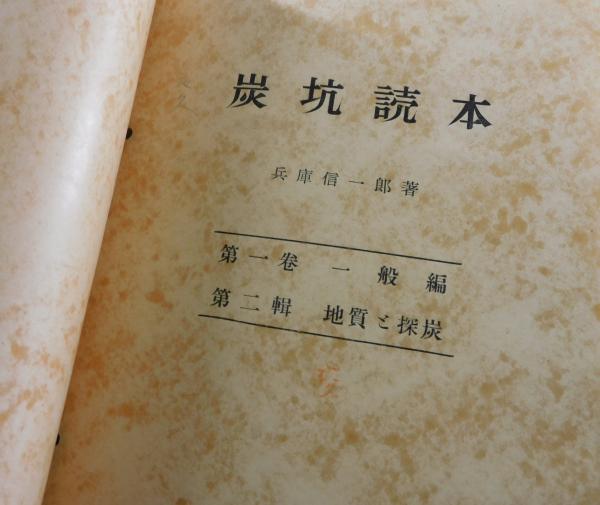 炭坑読本
兵庫信一郎著
第一巻 一般編
第二輯 地質と探炭